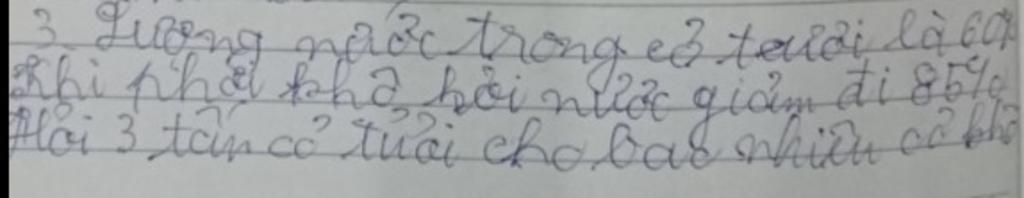 3. Lượng nước trong cỏ tươi là 60%
Khi phơi khô hơi nước giảm đi 85%
Hỏi 3 tấn cỏ tươi cho bao nhiêu cỏ khô